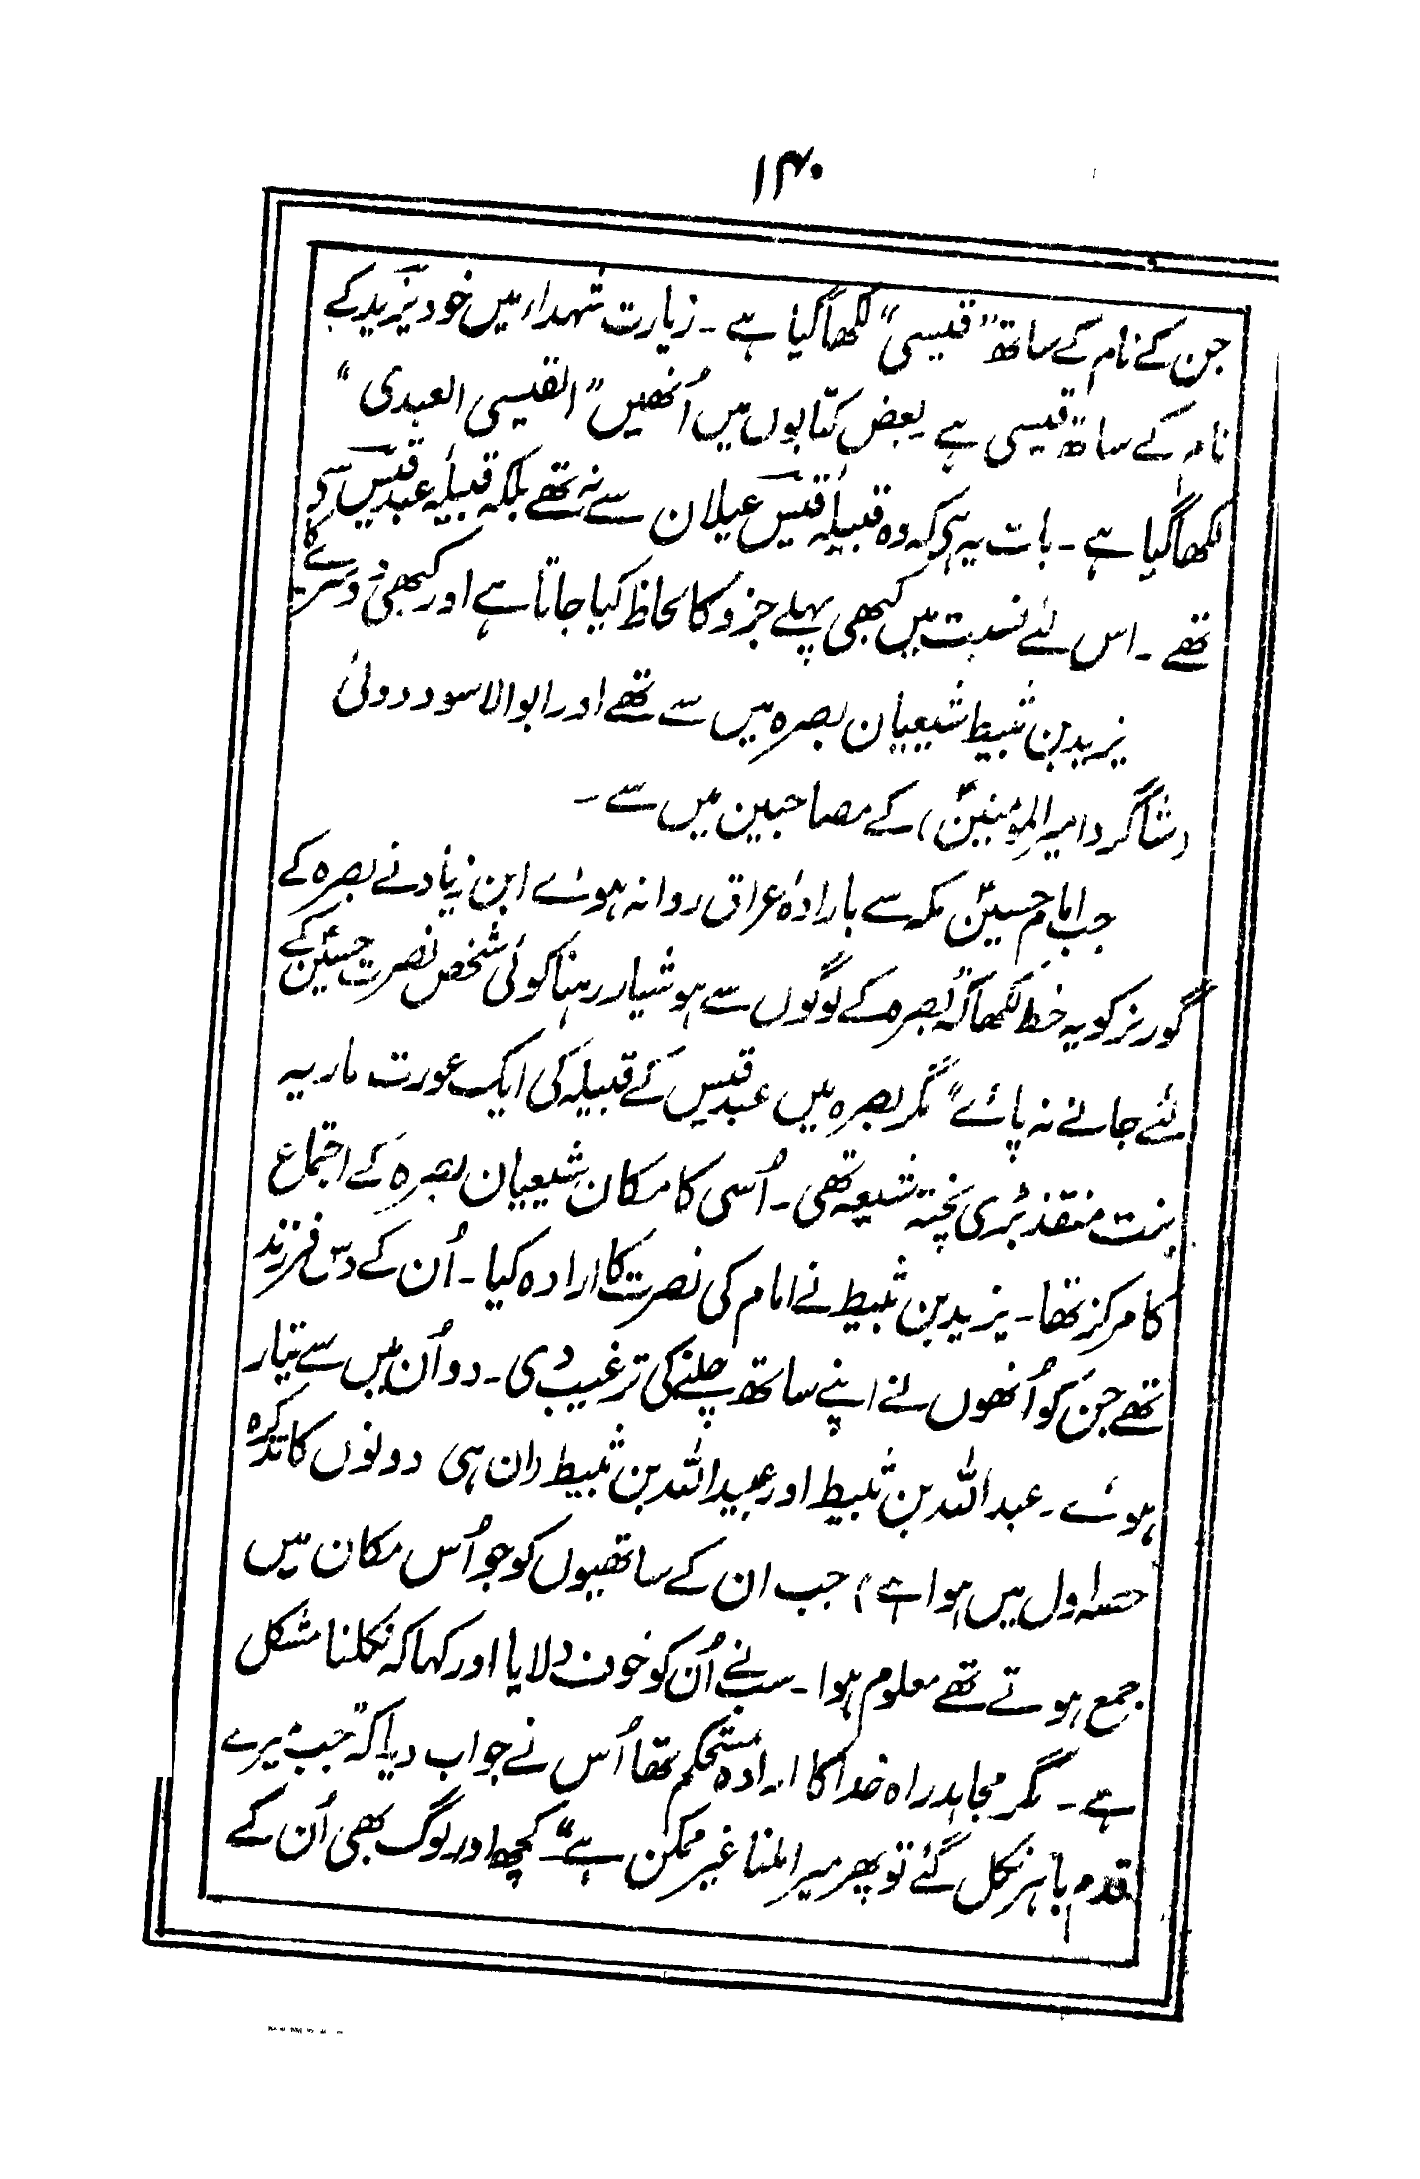 ۱۴۰
جن کے نام کے ساتھ "قیسی" لکھا گیا ہے ۔ زیارت شہداء میں خود یزید کے
نام کے ساتھ قیسی ہے بعض کتابوں میں اُنھیں "القیسی العبدی"
لکھا گیا ہے ۔ بات یہ ہی کہ وہ قبیلہ قیس عیلان سے نہ تھے بلکہ قبیلہ عبد قیس سے
تھے ۔ اس لئے نسبت میں کبھی پہلے جزو کا لحاظ کیا جاتا ہے اور کبھی دوسرے کا
یزید بن ثبیط شیعیان بصرہ میں سے تھے اور ابوالاسود دولی
(شاگرد امیرالمومنینؑ) کے مصاحبین میں سے ۔
جب امام حسینؑ مکہ سے بارادہ عراق روانہ ہوئے ابن زیاد نے بصرہ کے
گورنر کو یہ خط لکھا کہ بصرہ کے لوگوں سے ہوشیار رہنا کوئی شخص نصرت حسینؑ کے
لئے جانے نہ پائے" مگر بصرہ میں عبد قیس کے قبیلہ کی ایک عورت ماریہ
بنت منقذ بڑی پختہ شیعہ تھی ۔ اُسی کا مکان شیعیان بصرہ کے اجتماع
کا مرکز تھا ۔ یزید بن ثبیط نے امام کی نصرت کا ارادہ کیا ۔ اُن کے دس فرزند
تھے جن کو اُنھوں نے اپنے ساتھ چلنے کی ترغیب دی ۔ دو اُن میں سے تیار
ہوئے ۔ عبداللہ بن ثبیط اور عبیداللہ بن ثبیط (ان ہی دونوں کا تذکرہ
حصہ اول میں ہوا ہے) جب ان کے ساتھیوں کو جو اُس مکان میں
جمع ہوتے تھے معلوم ہوا ۔ سب نے اُن کو خوف دلایا اور کہا کہ نکلنا مشکل
ہے ۔ مگر مجاہد راہ خدا کا ارادہ مستحکم تھا اُس نے جواب دیا کہ "جب میرے
قدم باہر نکل گئے تو پھر میرا ملنا غیر ممکن ہے" کچھ اور لوگ بھی اُن کے